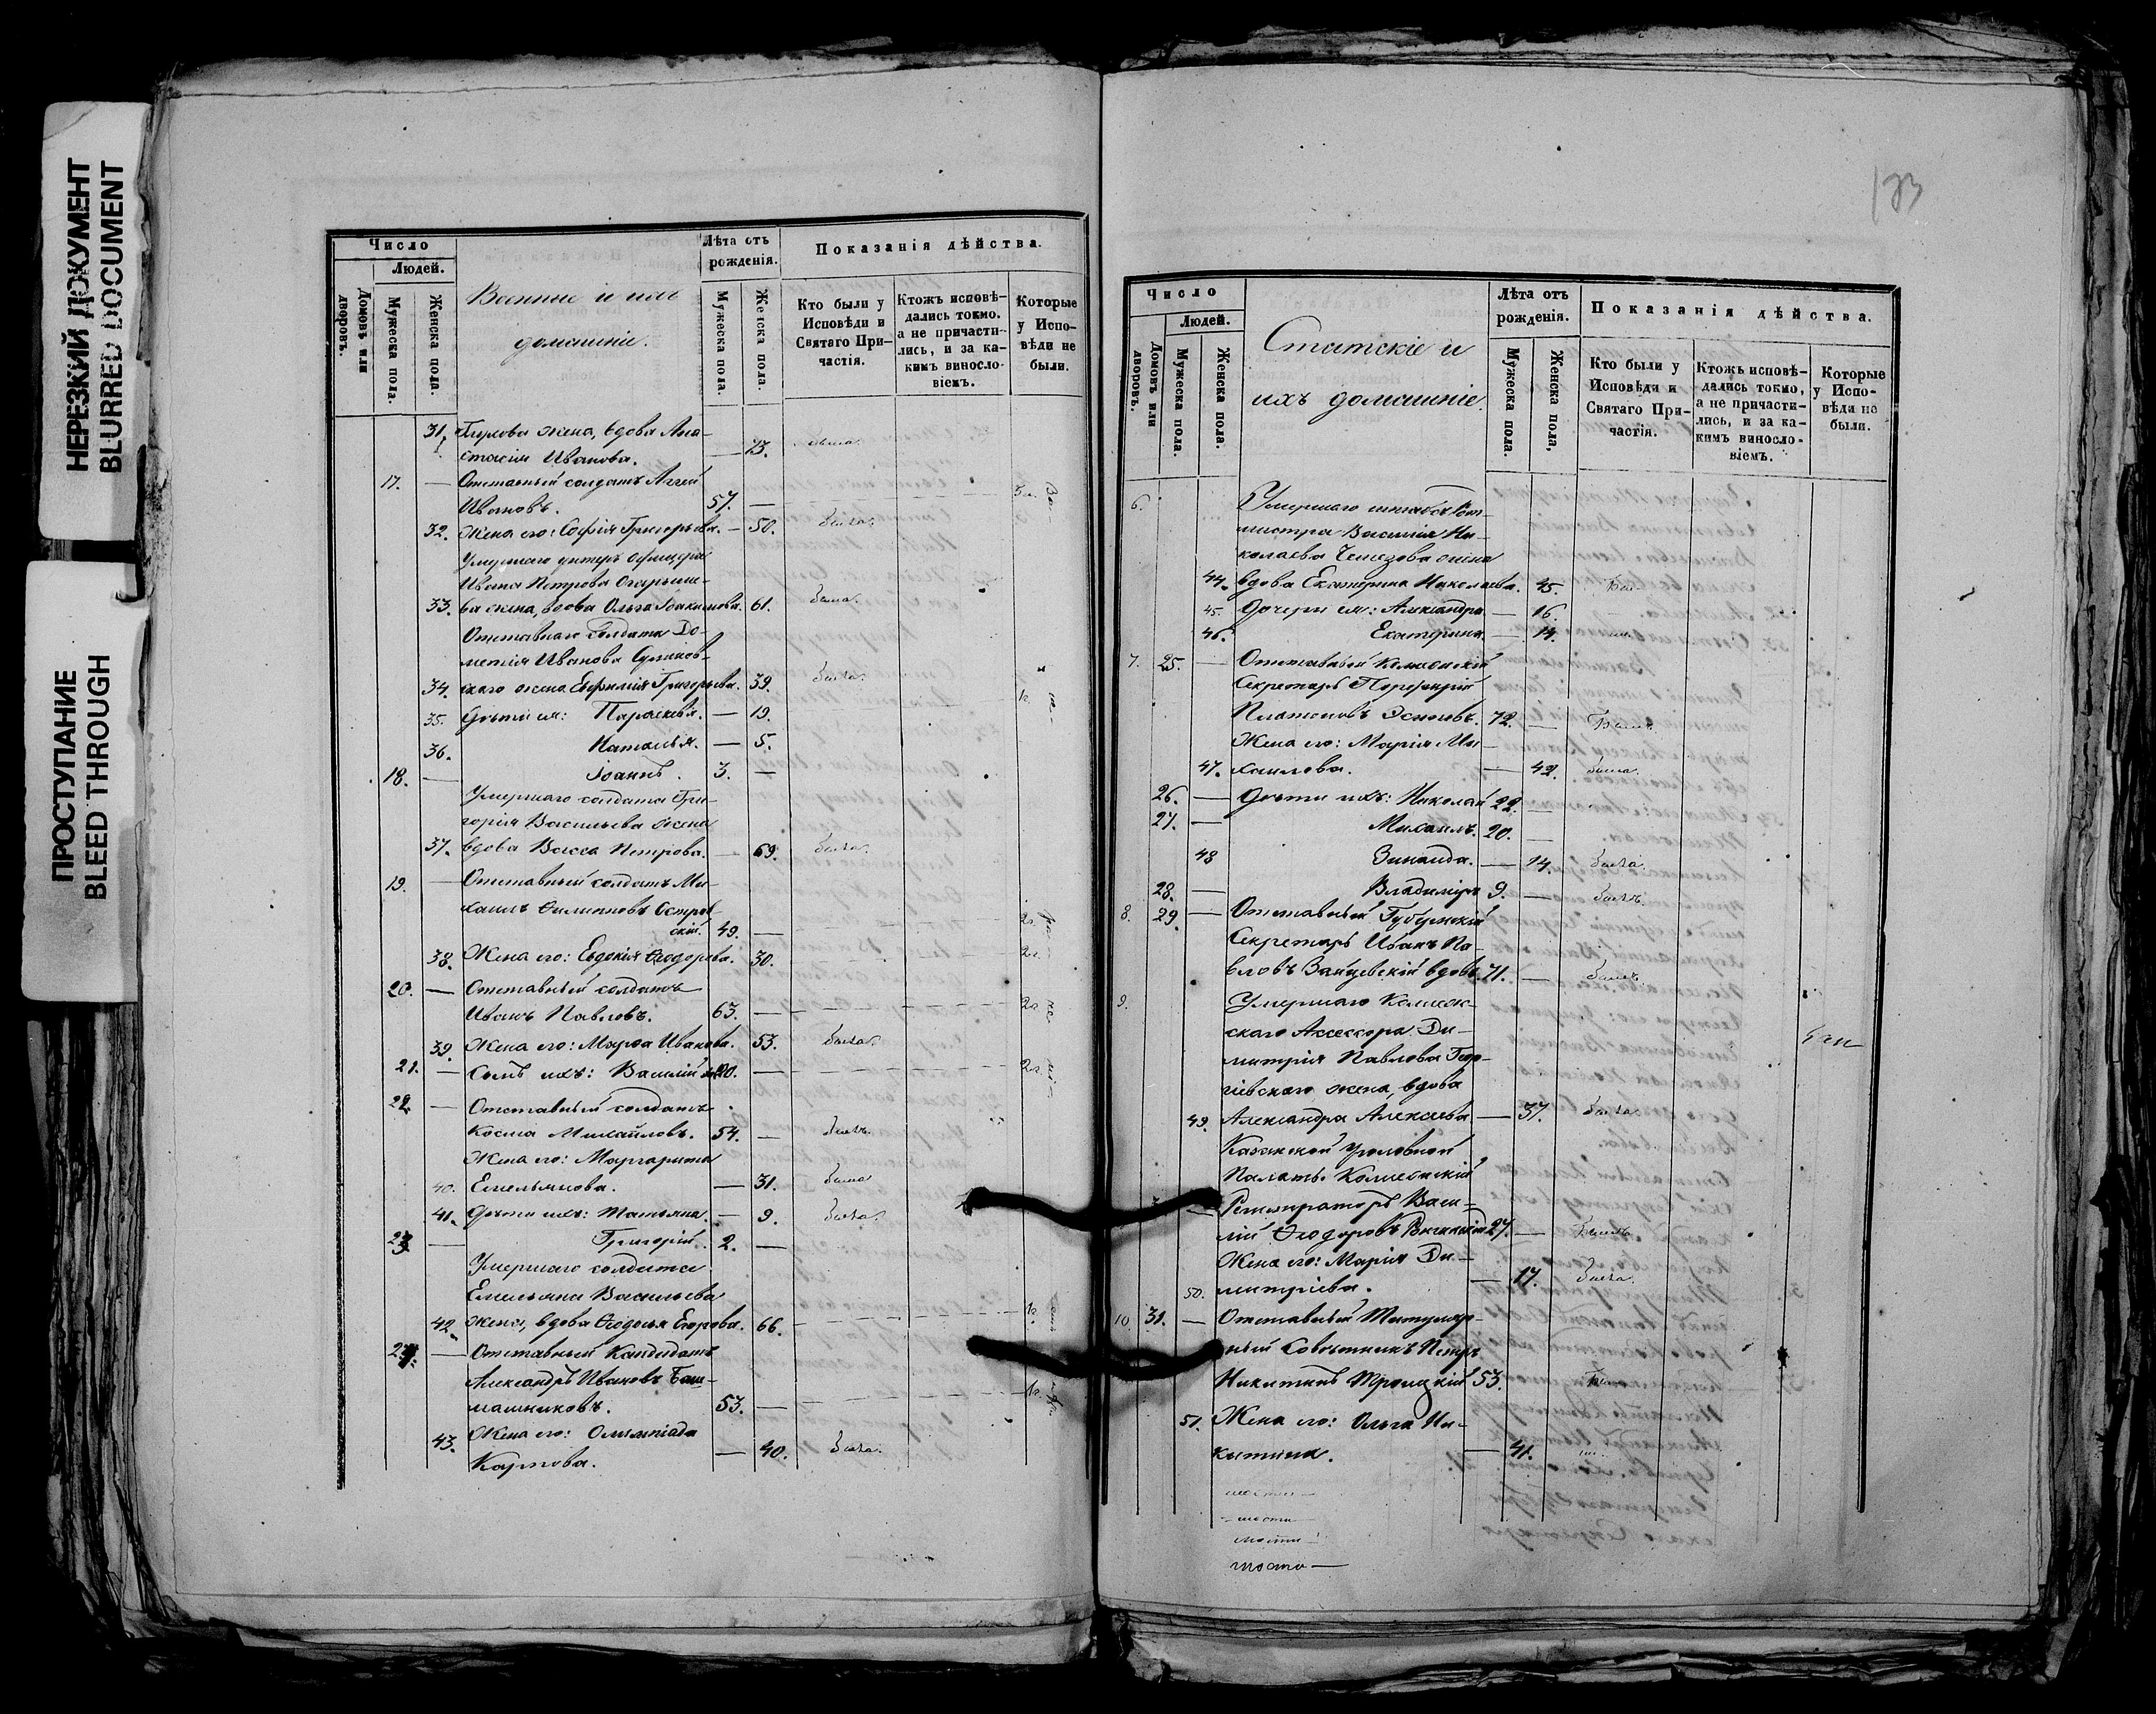 НЕРЕЗКИЙ ДОКУМЕНТ
BLURRED DOCUMENT
ПРОСТУПАНИЕ
BLEED THROUGH
Число
Людей.
Домовъ или дворовъ.
Мужеска пола.
Женска пола.
Военные и ихъ
домашніе.
Лѣта отъ
рожденія.
Мужеска пола.
Женска пола.
Показанія дѣйства.
Кто были у
Исповѣди и
Святаго При-
частія.
Ктожъ исповѣ-
дались токмо,
а не причасти-
лись, и за ка-
кимъ винсло-
віемъ.
Которые
у Испо-
вѣди не
были.
31. жена, вдова Ана-
стасія Иванова. — 73. была.
17. — Отставный солдатъ Аггей
Ивановъ. 57. —
32. Жена его: Софія Григорьева. — 50. была.
Умершаго унтеръ офицера
Ивана Петрова
33. ва жена, вдова Ольга Іоакимова. 61. была.
Отставнаго солдата До-
метія Иванова
34. скаго жена Евфимія Григорьева. 39. была.
35. Дѣти ея: Параскева. — 19.
36. Наталья. — 5.
18. — Іоаннъ. 3. —
Умершаго солдата Гри-
горія Васильева жена
37. вдова Васса Петрова. — 69. была.
19. — Отставный солдатъ Ми-
хаилъ Филипповъ Остров-
скій. 49. —
38. Жена его: Евдокія Ѳеодорова. 30.
20. — Отставный солдатъ
Иванъ Павловъ. 63. —
39. Жена его: Марѳа Иванова. 53. была.
21. — Сынъ ихъ: Василій 20. —
22. — Отставный солдатъ
Косма Михайловъ. 54. — былъ.
Жена его: Маргарита
40. Емельянова. — 31. была
41. Дѣти ихъ: Татьяна. — 9. была.
23. — Григорій. 2. —
Умершаго солдата
Емельяна Васильева
42. жена, вдова Ѳеодосья Егорова. 66.
24. — Отставный Кандидатъ
Александръ Ивановъ Баш-
машниковъ. 53. —
43. Жена его: Олимпіада
Карпова. — 40. была.
Число
Людей.
Домовъ или дворовъ.
Мужеска пола.
Женска пола.
Статскіе и
ихъ домашніе.
Лѣта отъ
рожденія.
Мужеска пола.
Женска пола,
Показанія дѣйства.
Кто были у
Исповѣди и
Святаго При-
частія.
Ктожъ исповѣ-
дались токмо,
а не причасти-
лись, и за ка-
кимъ винсло-
віемъ.
Которые
у Испо-
вѣди не
были.
6. Умершаго штабсъ Рот-
мистра Василія Ни-
колаева жена
44. вдова Екатерина Николаева. 45.
45. Дочери ея: Александра — 16.
46. Екатерина — 14.
7. 25. — Отставный Коллежскій
Секретарь Порфирій
Платоновъ Осиповъ. 72. — Былъ
Жена его: Марія Ми-
47. хаилова. — 42. была.
26. — Дѣти ихъ: Николай 22. —
27. — Михаилъ. 20. —
48 Зинаида. — 14. была.
28. — Владиміръ 9. — былъ.
8. 29. — Отставный Губернскій
Секретарь Иванъ Па-
вловъ Зайцевскій вдовъ. 71. — былъ.
9. Умершаго Коллеж-
скаго Ассессора Ди-
митрія Павлова Геор-
гіевскаго жена, вдова
49. Александра Алексѣева — 37. была.
Казанской Уголовной
Палаты Коллежскій
— Регистраторъ Васи-
лій Ѳеодоровъ 27. — былъ.
Жена его: Марія Ди-
50. митріева. — 17. была.
10. 31. — Отставный Титуляр-
ный Совѣтникъ Петръ
Никитинъ Троицкій 53.
51. Жена его: Ольга Ни-
китина. — 41.